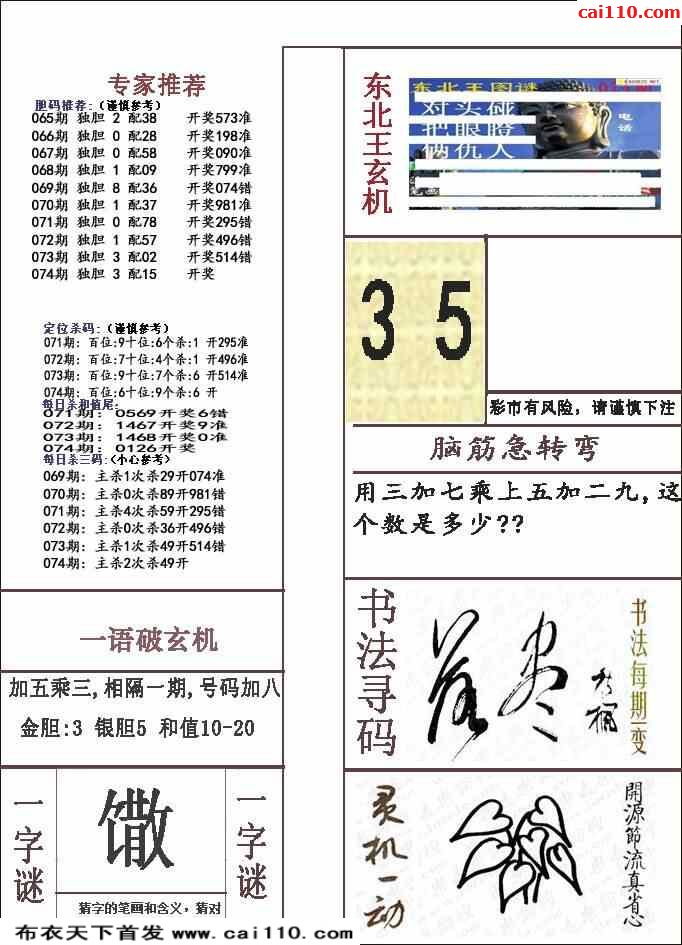 cai110.com
专家推荐
胆码推荐:（谨慎参考）
065期 独胆 2 配38 开奖573准
066期 独胆 0 配28 开奖198准
067期 独胆 0 配58 开奖090准
068期 独胆 1 配09 开奖799准
069期 独胆 8 配36 开奖074错
070期 独胆 1 配37 开奖981准
071期 独胆 0 配78 开奖295错
072期 独胆 1 配57 开奖496错
073期 独胆 3 配02 开奖514错
074期 独胆 3 配15 开奖
定位杀码:（谨慎参考）
071期: 百位:9十位:6个杀:1 开295准
072期: 百位:7十位:4个杀:1 开496准
073期: 百位:9十位:7个杀:6 开514准
074期: 百位:6十位:9个杀:6 开
每日杀和值尾:
071期: 0569开奖6错
072期: 1467开奖9准
073期: 1468开奖0准
074期: 0126开奖
每日杀三码:(小心参考)
069期: 主杀1次杀29开074准
070期: 主杀0次杀89开981错
071期: 主杀4次杀59开295错
072期: 主杀0次杀36开496错
073期: 主杀1次杀49开514错
074期: 主杀2次杀49开
一语破玄机
加五乘三,相隔一期,号码加八
金胆:3 银胆5 和值10-20
一字谜
馓
一字谜
猜字的笔画和含义，猜对
布衣天下首发 www.cai110.com
东北王玄机
东北王图谜
对头碰
把眼瞪
俩仇人
电话
3 5
彩市有风险，请谨慎下注
脑筋急转弯
用三加七乘上五加二九,这
个数是多少??
书法寻码
书法每期一变
灵机一动
開源節流真省心